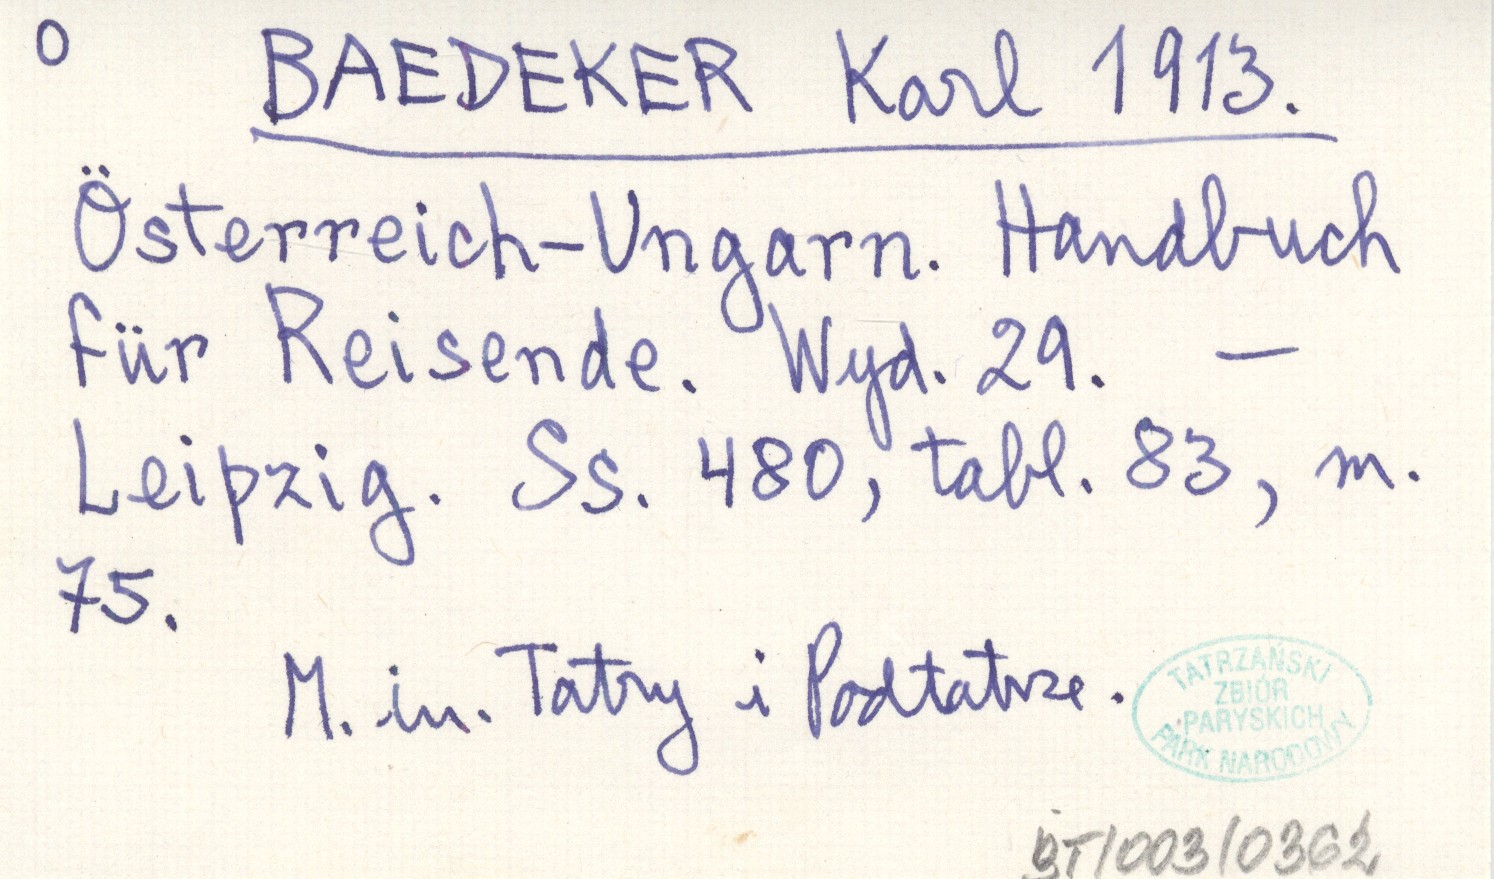 O
BAEDEKER Karl 1913.
Österreich-Ungarn. Handbuch
für Reisende. Wyd. 29. —
Leipzig. Ss. 480, tabl. 83, m.
75.
M. in. Tatry i Podtatrze.
TATRZAŃSKI
ZBIÓR
PARYSKICH
PARK NARODOWY
BT/003/0362